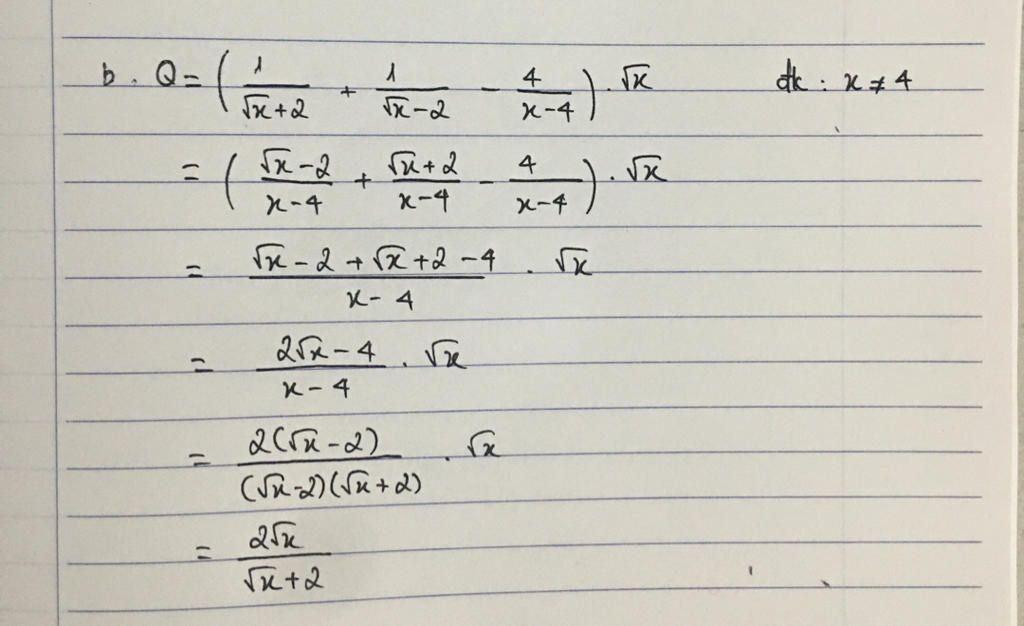 b. Q = ( 1/(√x+2) + 1/(√x−2) − 4/(x−4) ) . √x đk : x ≠ 4
= ( (√x−2)/(x−4) + (√x+2)/(x−4) − 4/(x−4) ) . √x
= (√x−2+√x+2−4)/(x−4) . √x
= (2√x−4)/(x−4) . √x
= 2(√x−2)/((√x−2)(√x+2)) . √x
= 2√x/(√x+2)